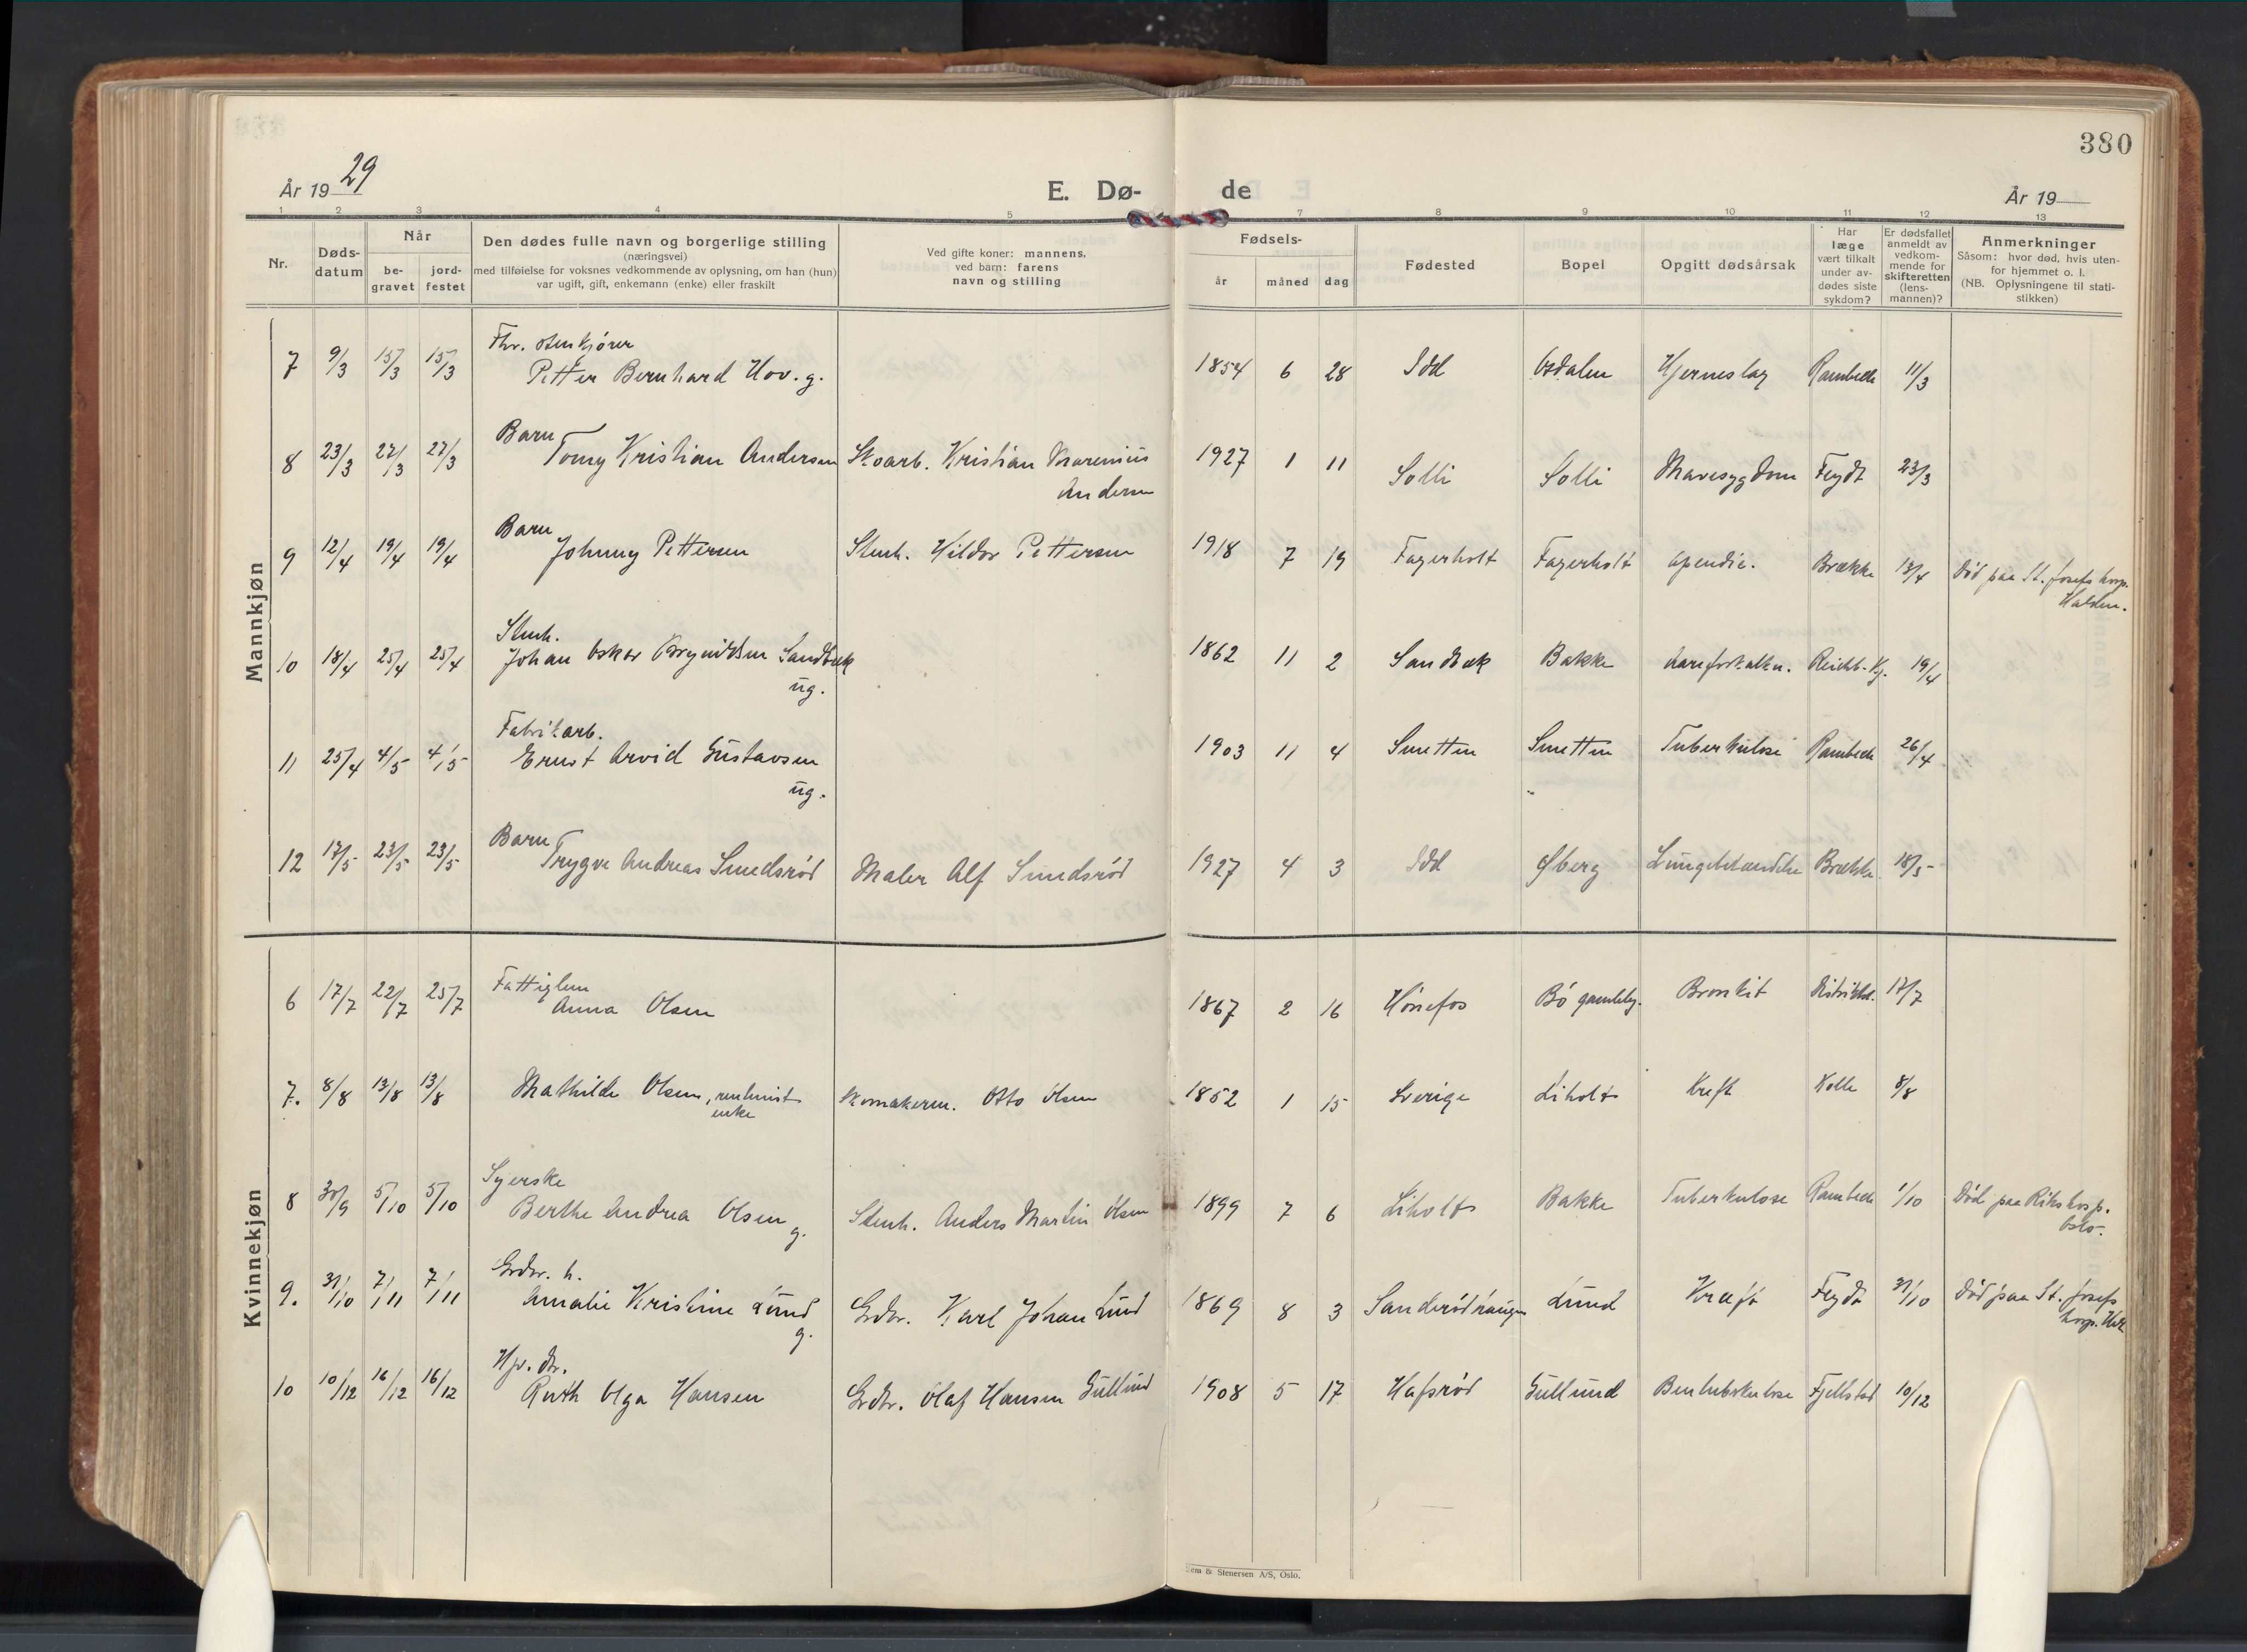 380
År 1929
E. Dø-
de
År 19
1 2 3 4 5 7 8 9 10 11 12 13
Nr.
Døds-
datum
Når
be-
gravet
jord-
festet
Den dødes fulle navn og borgerlige stilling
(næringsvei)
med tilføielse for voksnes vedkommende av oplysning, om han (hun)
var ugift, gift, enkemann (enke) eller fraskilt
Ved gifte koner: mannens,
ved barn: farens
navn og stilling
Fødsels-
år måned dag
Fødested
Bopel
Opgitt dødsårsak
Har
læge
vært tilkalt
under av-
dødes siste
sykdom?
Er dødsfallet
anmeldt av
vedkom-
mende for
skifteretten
(lens-
mannen)?
Anmerkninger
Såsom: hvor død, hvis uten-
for hjemmet o. l.
(NB. Oplysningene til stati-
stikken)
Mannkjøn
Fhv. stenkjører
7 9/3 15/3 15/3 Petter Bernhard Hov. g. 1854 6 28 Idd Hjerneslag Rambech 11/3
Barn
8 23/3 27/3 27/3 Tomy Kristian Andersen Skoarb. Kristian Marenius 1927 1 11 Solli Solli Mavesygdom Feydt 23/3
Andersen
Barn
9 12/4 19/4 19/4 Johnny Pettersen Stenh. Hildor Pettersen 1918 7 19 Fagerholt Fagerholt apendic. Brække 13/4 Død paa St. Josefs hosp.
Halden.
Stenh.
10 18/4 25/4 25/4 Johan Oskar Brynildsen Sandbæk 1862 11 2 Sandbæk Bakke Aareforkalkn. 19/4
ug.
Fabrikarb.
11 25/4 4/5 4/5 Ernst Arvid Gustavsen 1903 11 4 Smetten Smetten Tuberkulose Rambech 26/4
ug.
Barn
12 17/5 23/5 23/5 Trygve Andreas Smedsrød Maler Alf Smedsrød 1927 4 3 Idd Øberg Lungebetændelse Brække 18/5
Kvinnekjøn
Fattiglem
6 17/7 22/7 25/7 Anna Olsen 1867 2 16 Hønefos Bø gamlehj. Bronkit Distriktsl. 17/7
7. 8/8 13/8 13/8 Mathilde Olsen, Skomakerm. Otto Olsen 1852 1 15 Sverige Liholt Kreft Kolle 8/8
enke
Syerske
8 30/9 5/10 5/10 Berthe Andrea Olsen Stenh. Anders Martin Olsen 1899 7 6 Liholt Bakke Tuberkulose Rambech 1/10 Død paa Rikshosp.
g. Oslo.
Grdbr. h.
9. 31/10 7/11 7/11 Amalie Kristine Lund Grdbr. Karl Johan Lund 1869 8 3 Sanderødhaugen Lund Kræft Feydt 31/10 Død paa St. Josefs
g. hosp. Hald.
Hjv. dtr.
10 10/12 16/12 16/12 Ruth Olga Hansen Grdbr. Olaf Hansen Gullund 1908 5 17 Hafsrød Gullund Bentuberkulose Fjellstad 10/12
Sem & Stenersen A/S, Oslo.